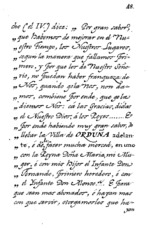 48.
dre (el IV.) dice: „Por gran sabor,
que Habemos de mejorar en el Nues-
tro Tiempo, los Nuestros Lugares,
segun la manera que fallamos Pri-
mero; y por que los de Nuestro Seño-
rio, no puedan haber franqueza de
Nos, quando gela Nos, non da-
mos, conviene, Por ende, que a la
dicemos Nos: da las Gracias, dias
el Nuestro Dior; à los Reyes
por ende habiendo muy gran sabor,
llitar la Villa de ORDUNA adelan-
te, è de facer mucha merced, en uno
con la Reyna Doña Maria, mi Mu-
ger, è con mio Fijo el Infante Don
Fernando, Primero heredero, è con
el Infante Don Alonso. E para
que sean mas abonados, è hayan mas
con que servir, otorgamosles que ha-
yan